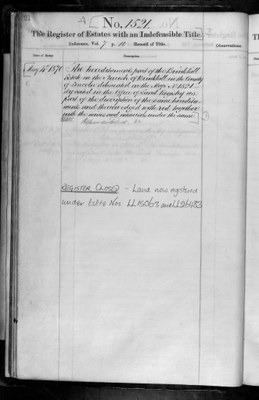 No. 1521.
The Register of Estates with an Indefeasible Title.
Reference, Vol. 7 p. (Record of Title.)
Date of Entry. Description.
Observations
The hereditaments part of the
in the Parish of in the County
of Lincoln delineated on the Map No 1521
deposited in the Office of Land Registry as
part of the description of the same heredita-
ments and thereon edged with red together
with the mines and minerals under the same
REGISTER CLOSED - Land now registered
under title Nos. LL15063 and LL26483